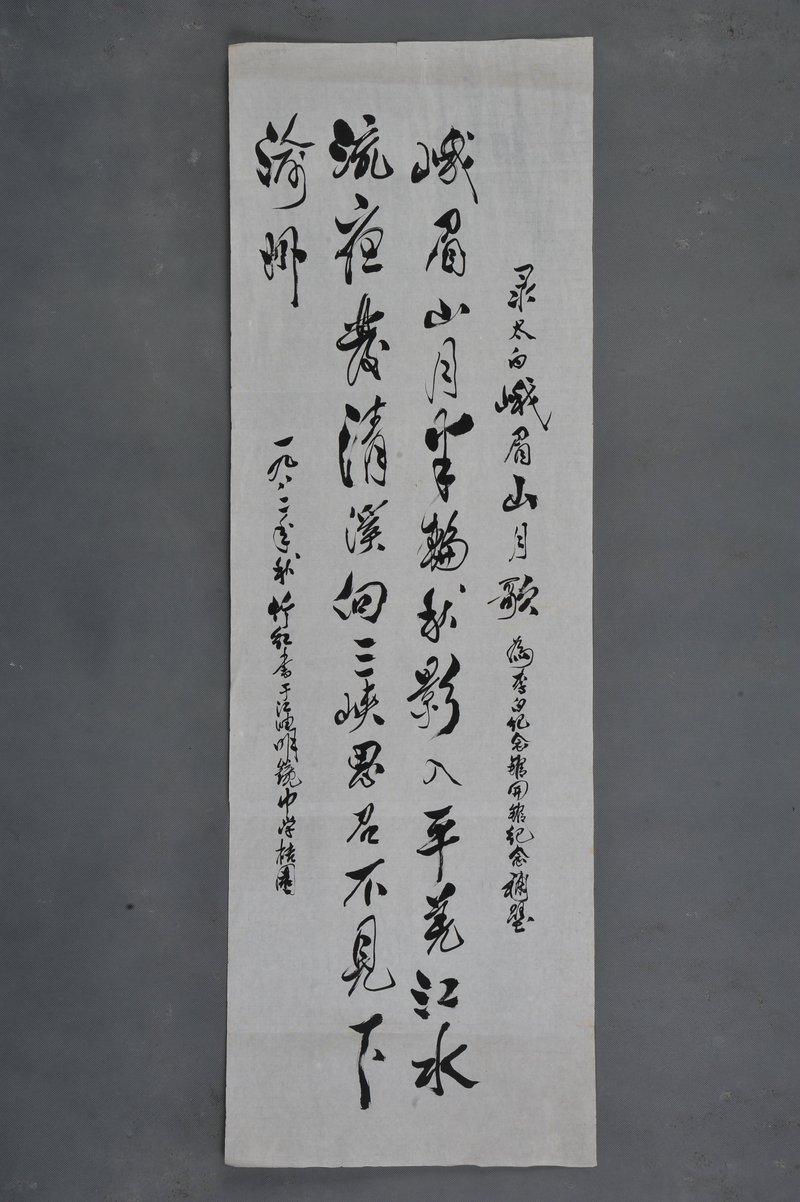 录太白峨眉山月歌 为李白纪念馆开馆纪念补壁
峨眉山月半轮秋影入平羌江水
流夜发清溪向三峡思君不见下
渝州
一九八二年秋 竹红书于江油明镜中学桔园